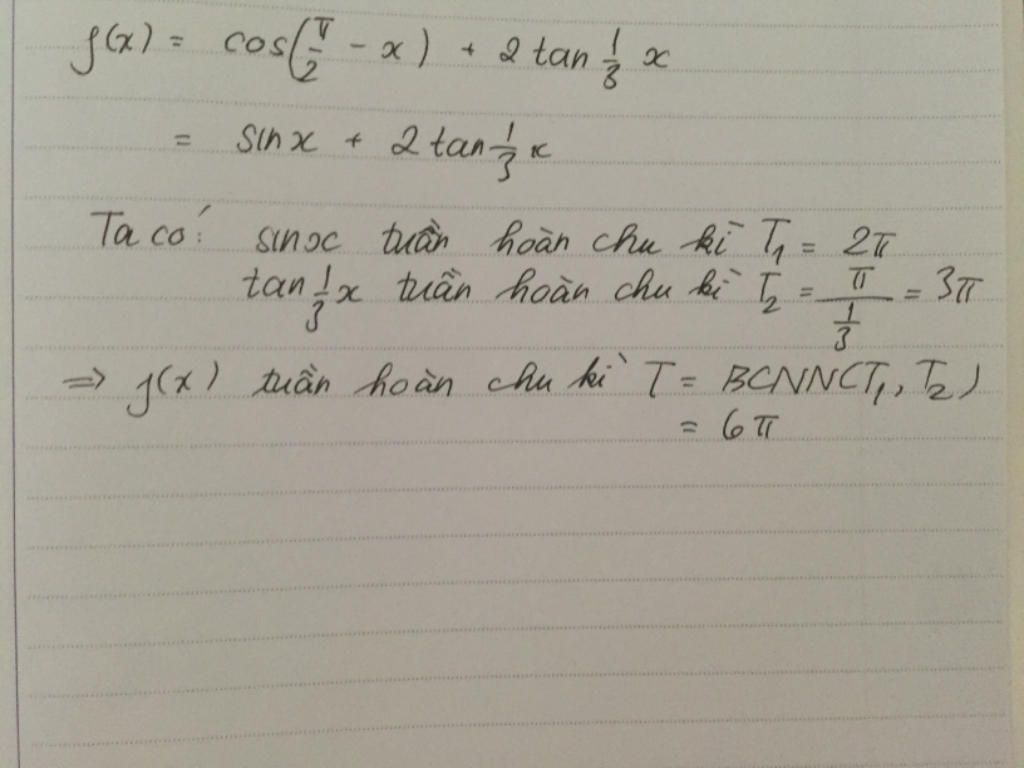 f(x) = cos(π/2 - x) + 2 tan 1/3 x
= sinx + 2 tan 1/3 x
Ta có: sinx tuần hoàn chu kì T₁ = 2π
tan 1/3 x tuần hoàn chu kì T₂ = π/(1/3) = 3π
=> f(x) tuần hoàn chu kì T = BCNN(T₁, T₂)
= 6π